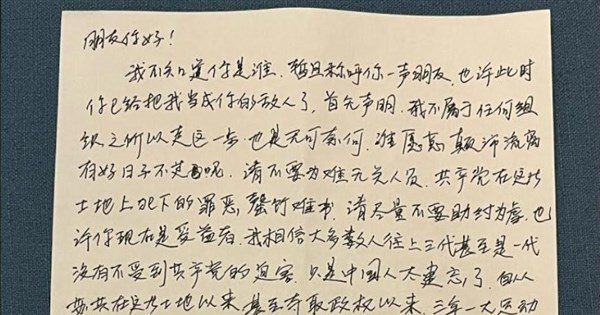 朋友你好！
我不知道你是谁，暂且称呼你一声朋友，也许此时
你已经把我当成你的敌人了，首先声明，我不属于任何组
织之所以走这一步也是无可奈何，谁愿意颠沛流离
有好日子不过呢，请不要为难无关人员，共产党在这片
土地上犯下的罪恶罄竹难书，请尽量不要助纣为虐，也
许你现在是受益者，我相信大多数人往上三代甚至是一代
没有不受到共产党的迫害，只是中国人太健忘了，自从
共在这片土地以来，甚至夺取政权以来，三年一大运动